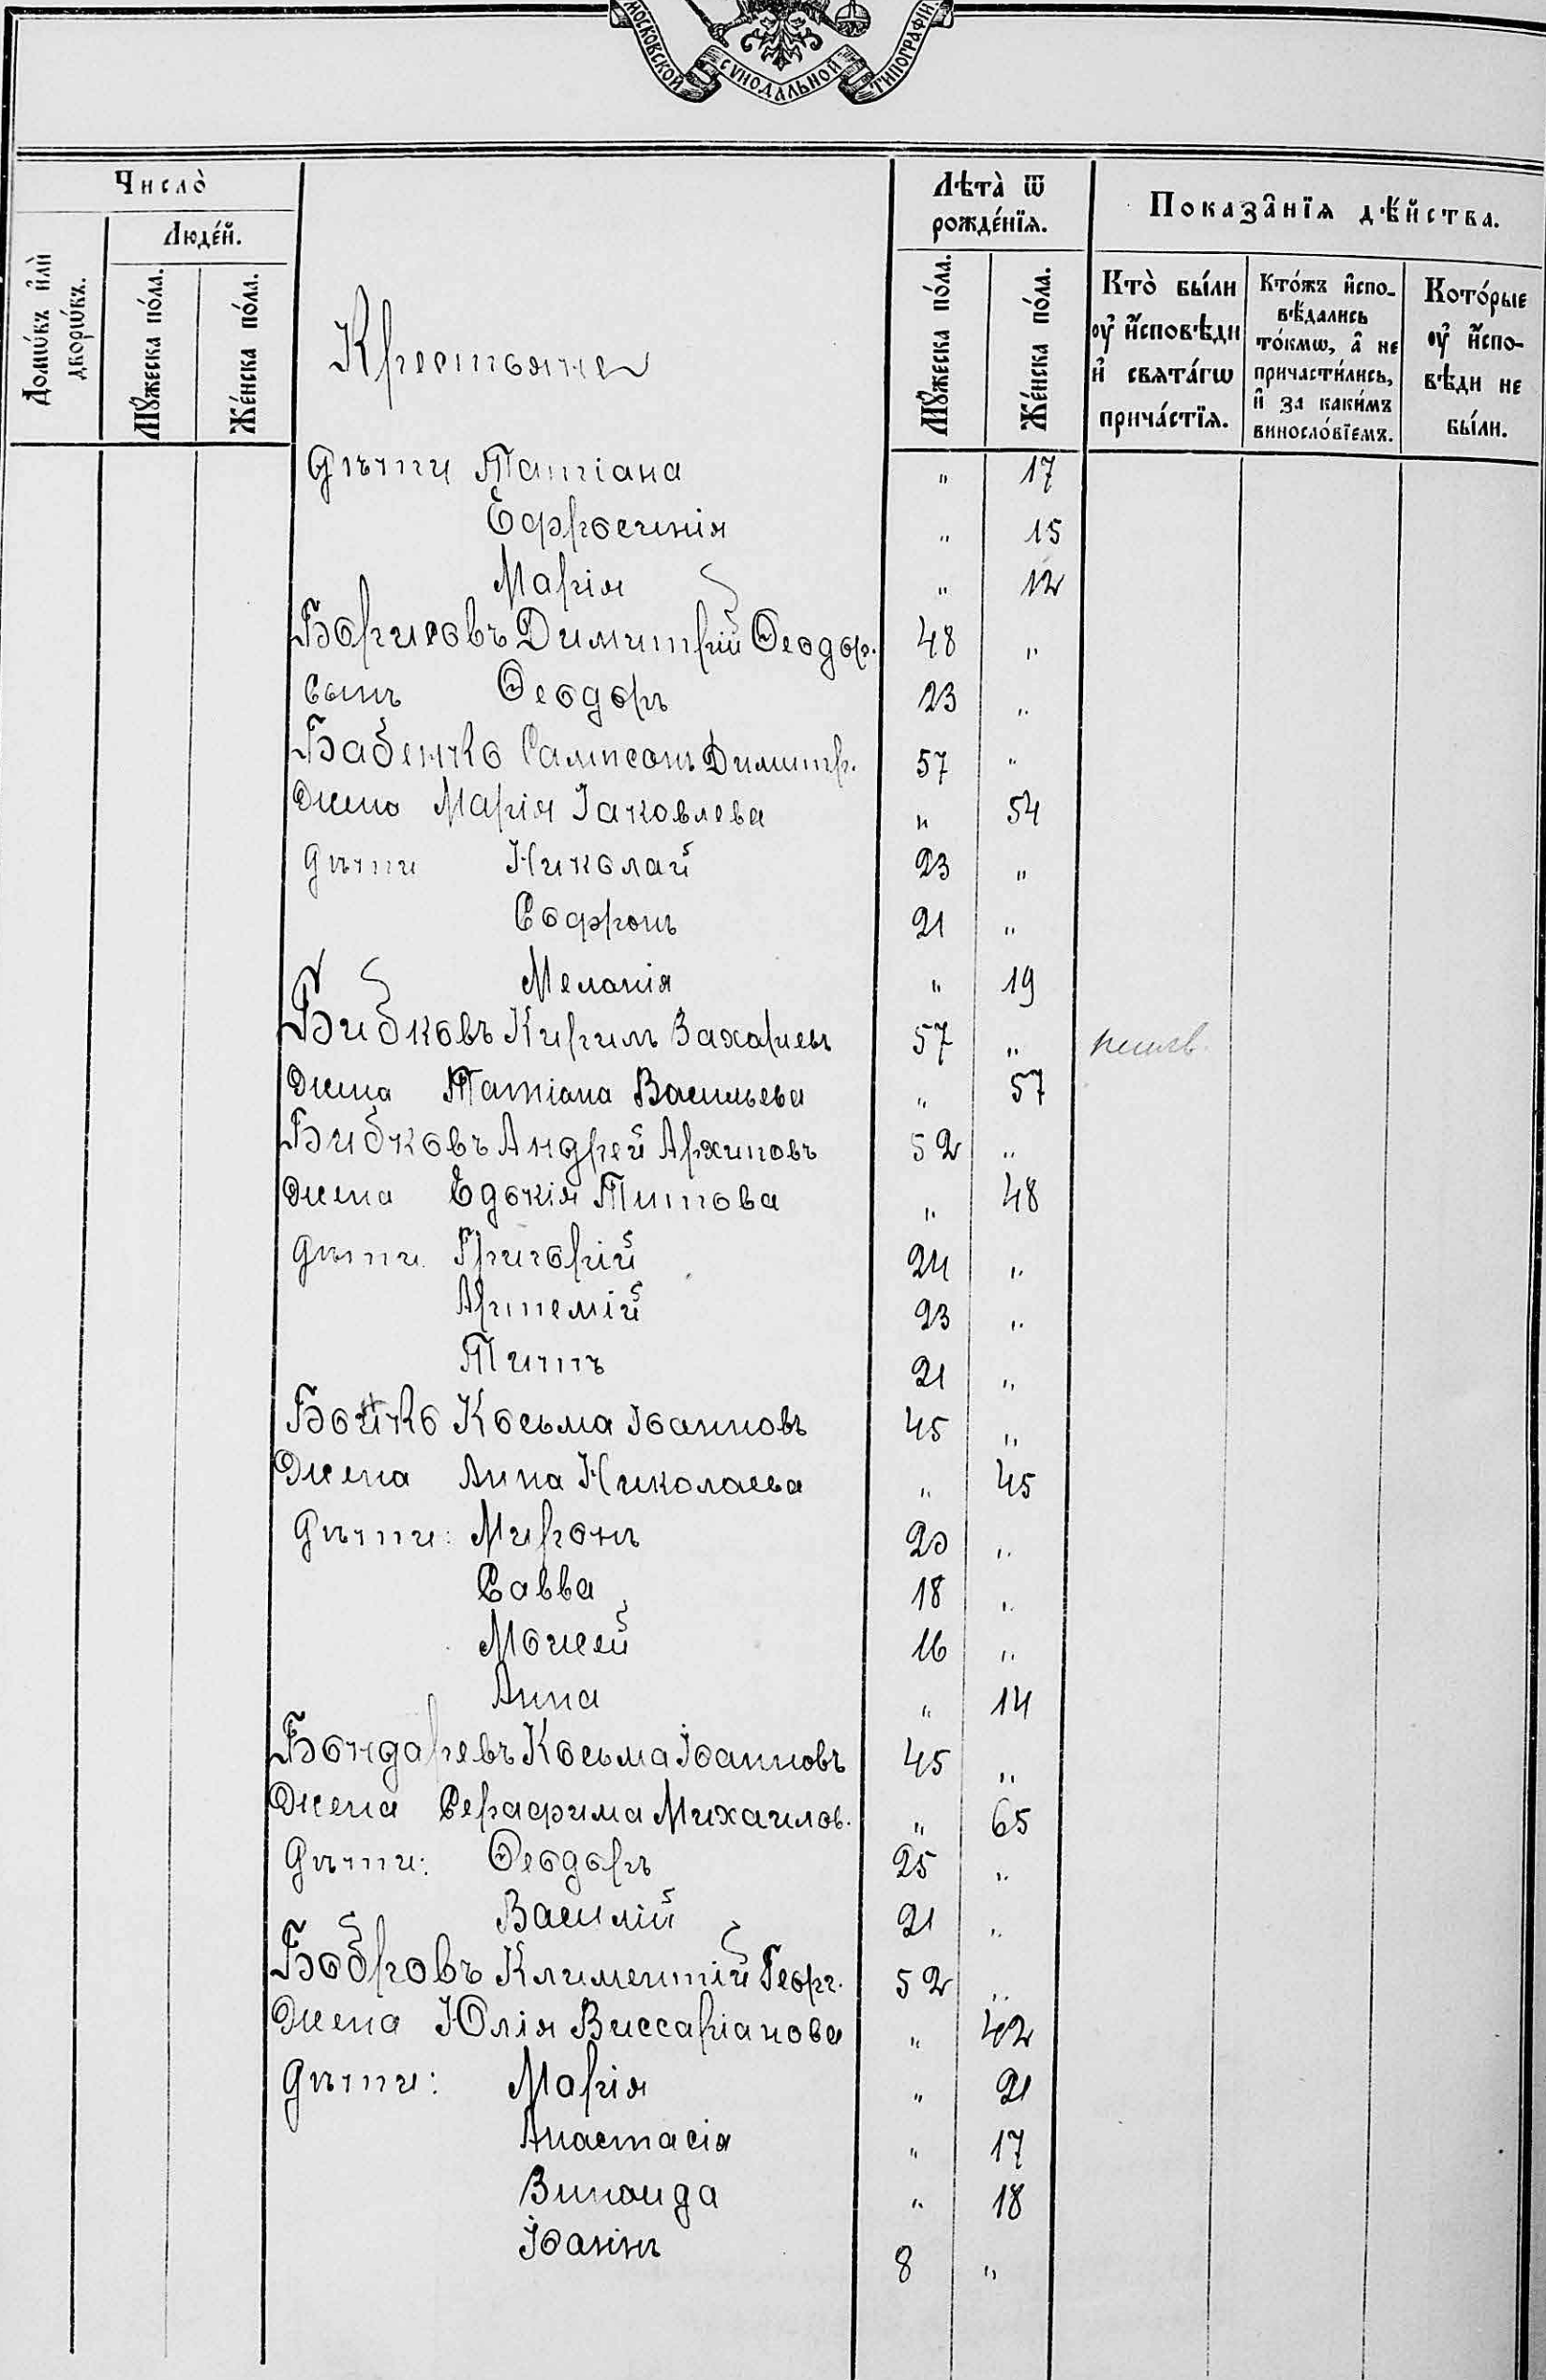 МОСКОВСКОЙ СѴНОДАЛЬНОЙ ТИПОГРАФІИ
Число̀
Людє́й.
Домѡ́въ и҆лѝ дворѡ́въ.
Мꙋ́жеска по́ла.
Же́нска по́ла.
Крестьяне
Лѣта̀ ѿ рожде́нїѧ.
Мꙋ́жеска по́ла.
Же́нска по́ла.
Показа̑нїѧ дѣ́йства.
Кто̀ бы́ли ᲂу҆ и҆сповѣди и҆ свята́гѡ прича́стїѧ.
Кто́жъ и҆спо-вѣ́дались то́кмѡ, а҆ не причасти́лись, и҆ за каки́мъ виносло́вїемъ.
Кото́рые ᲂу҆ и҆спо-вѣди не бы́ли.
Дѣти Татіана " 17
Ефросинія " 15
Марія " 12
Борисовъ Димитрій Ѳеодор. 48 "
Сынъ Ѳеодоръ 23 "
Бабенко Сампсонъ Димитр. 57 "
Жена Марія Іаковлева " 54
Дѣти Николай 23 "
Софронъ 21 "
Меланія " 19
Бибковъ Кирилъ Захаріевъ 57 "
Жена Татіана Васильева " 57
Бибковъ Андрей Архиповъ 52 "
Жена Едокія Титова " 48
Дѣти Григорій 24 "
Артемій 23 "
Титъ 21 "
Бойко Косьма Іоанновъ 45 "
Жена Анна Николаева " 45
Дѣти: Миронъ 20 "
Савва 18 "
Моисей 16 "
Анна " 14
Бондаревъ Косьма Іоанновъ 45 "
Жена Серафима Михаилов. " 65
Дѣти: Ѳеодоръ 25 "
Василій 21 "
Бобровъ Климентій Георг. 52 "
Жена Юлія Виссаріанова " 42
Дѣти: Марія " 21
Анастасія " 17
Зинаида " 18
Іоаннъ 8 "